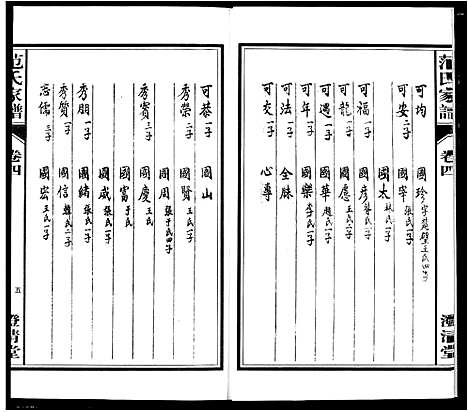 范氏家譜
卷四
澄清堂
可均 一子 國珍 字 璧 王氏 四子
可安 二子 國宰 張氏 一子
國太 氏 一子
可福 一子 國彦 氏 一子
可龍 一子 國愿 王氏 二子
可遇 一子 國華 趙氏 一子
可年 一子 國樂 李氏 一子
可法 一子 全脉
可交 一子 心尊
可恭 一子 國山
秀榮 二子 國賢 王氏 一子
國周 張氏 于氏 四子
秀賓 三子 國慶 王氏
國富 于氏
國威 張氏 一子
秀朋 一子 國緒 張氏 一子
秀質 一子 國信 韓氏 一子
志儒 三子 國宏 王氏 一子
范氏家譜
卷四
五
澄清堂